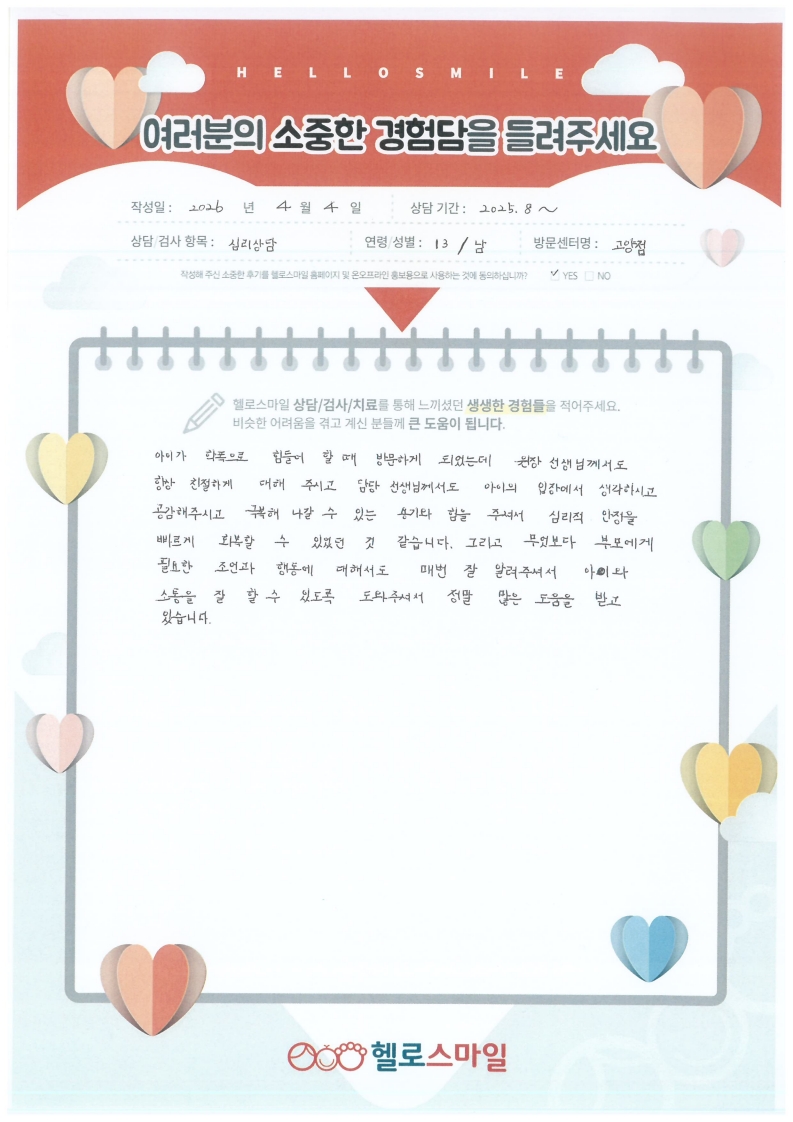 HELLOSMILE
여러분의 소중한 경험담을 들려주세요
작성일 : 2026 년 4 월 4 일 상담 기간 : 2025. 8 ~
상담/검사 항목 : 심리상담 연령/성별 : 13 / 남 방문센터명 : 고양점
작성해 주신 소중한 후기를 헬로스마일 홈페이지 및 온오프라인 홍보용으로 사용하는 것에 동의하십니까? ✓ YES □ NO
헬로스마일 상담/검사/치료를 통해 느끼셨던 생생한 경험들을 적어주세요.
비슷한 어려움을 겪고 계신 분들께 큰 도움이 됩니다.
아이가 학폭으로 힘들어 할 때 방문하게 되었는데 원장 선생님께서도
항상 친절하게 대해 주시고 담당 선생님께서도 아이의 입장에서 생각하시고
공감해주시고 극복해 나갈 수 있는 용기와 힘을 주셔서 심리적 안정을
빠르게 회복할 수 있었던 것 같습니다. 그리고 무엇보다 부모에게
필요한 조언과 행동에 대해서도 매번 잘 알려주셔서 아이와
소통을 잘 할 수 있도록 도와주셔서 정말 많은 도움을 받고
있습니다.
헬로스마일